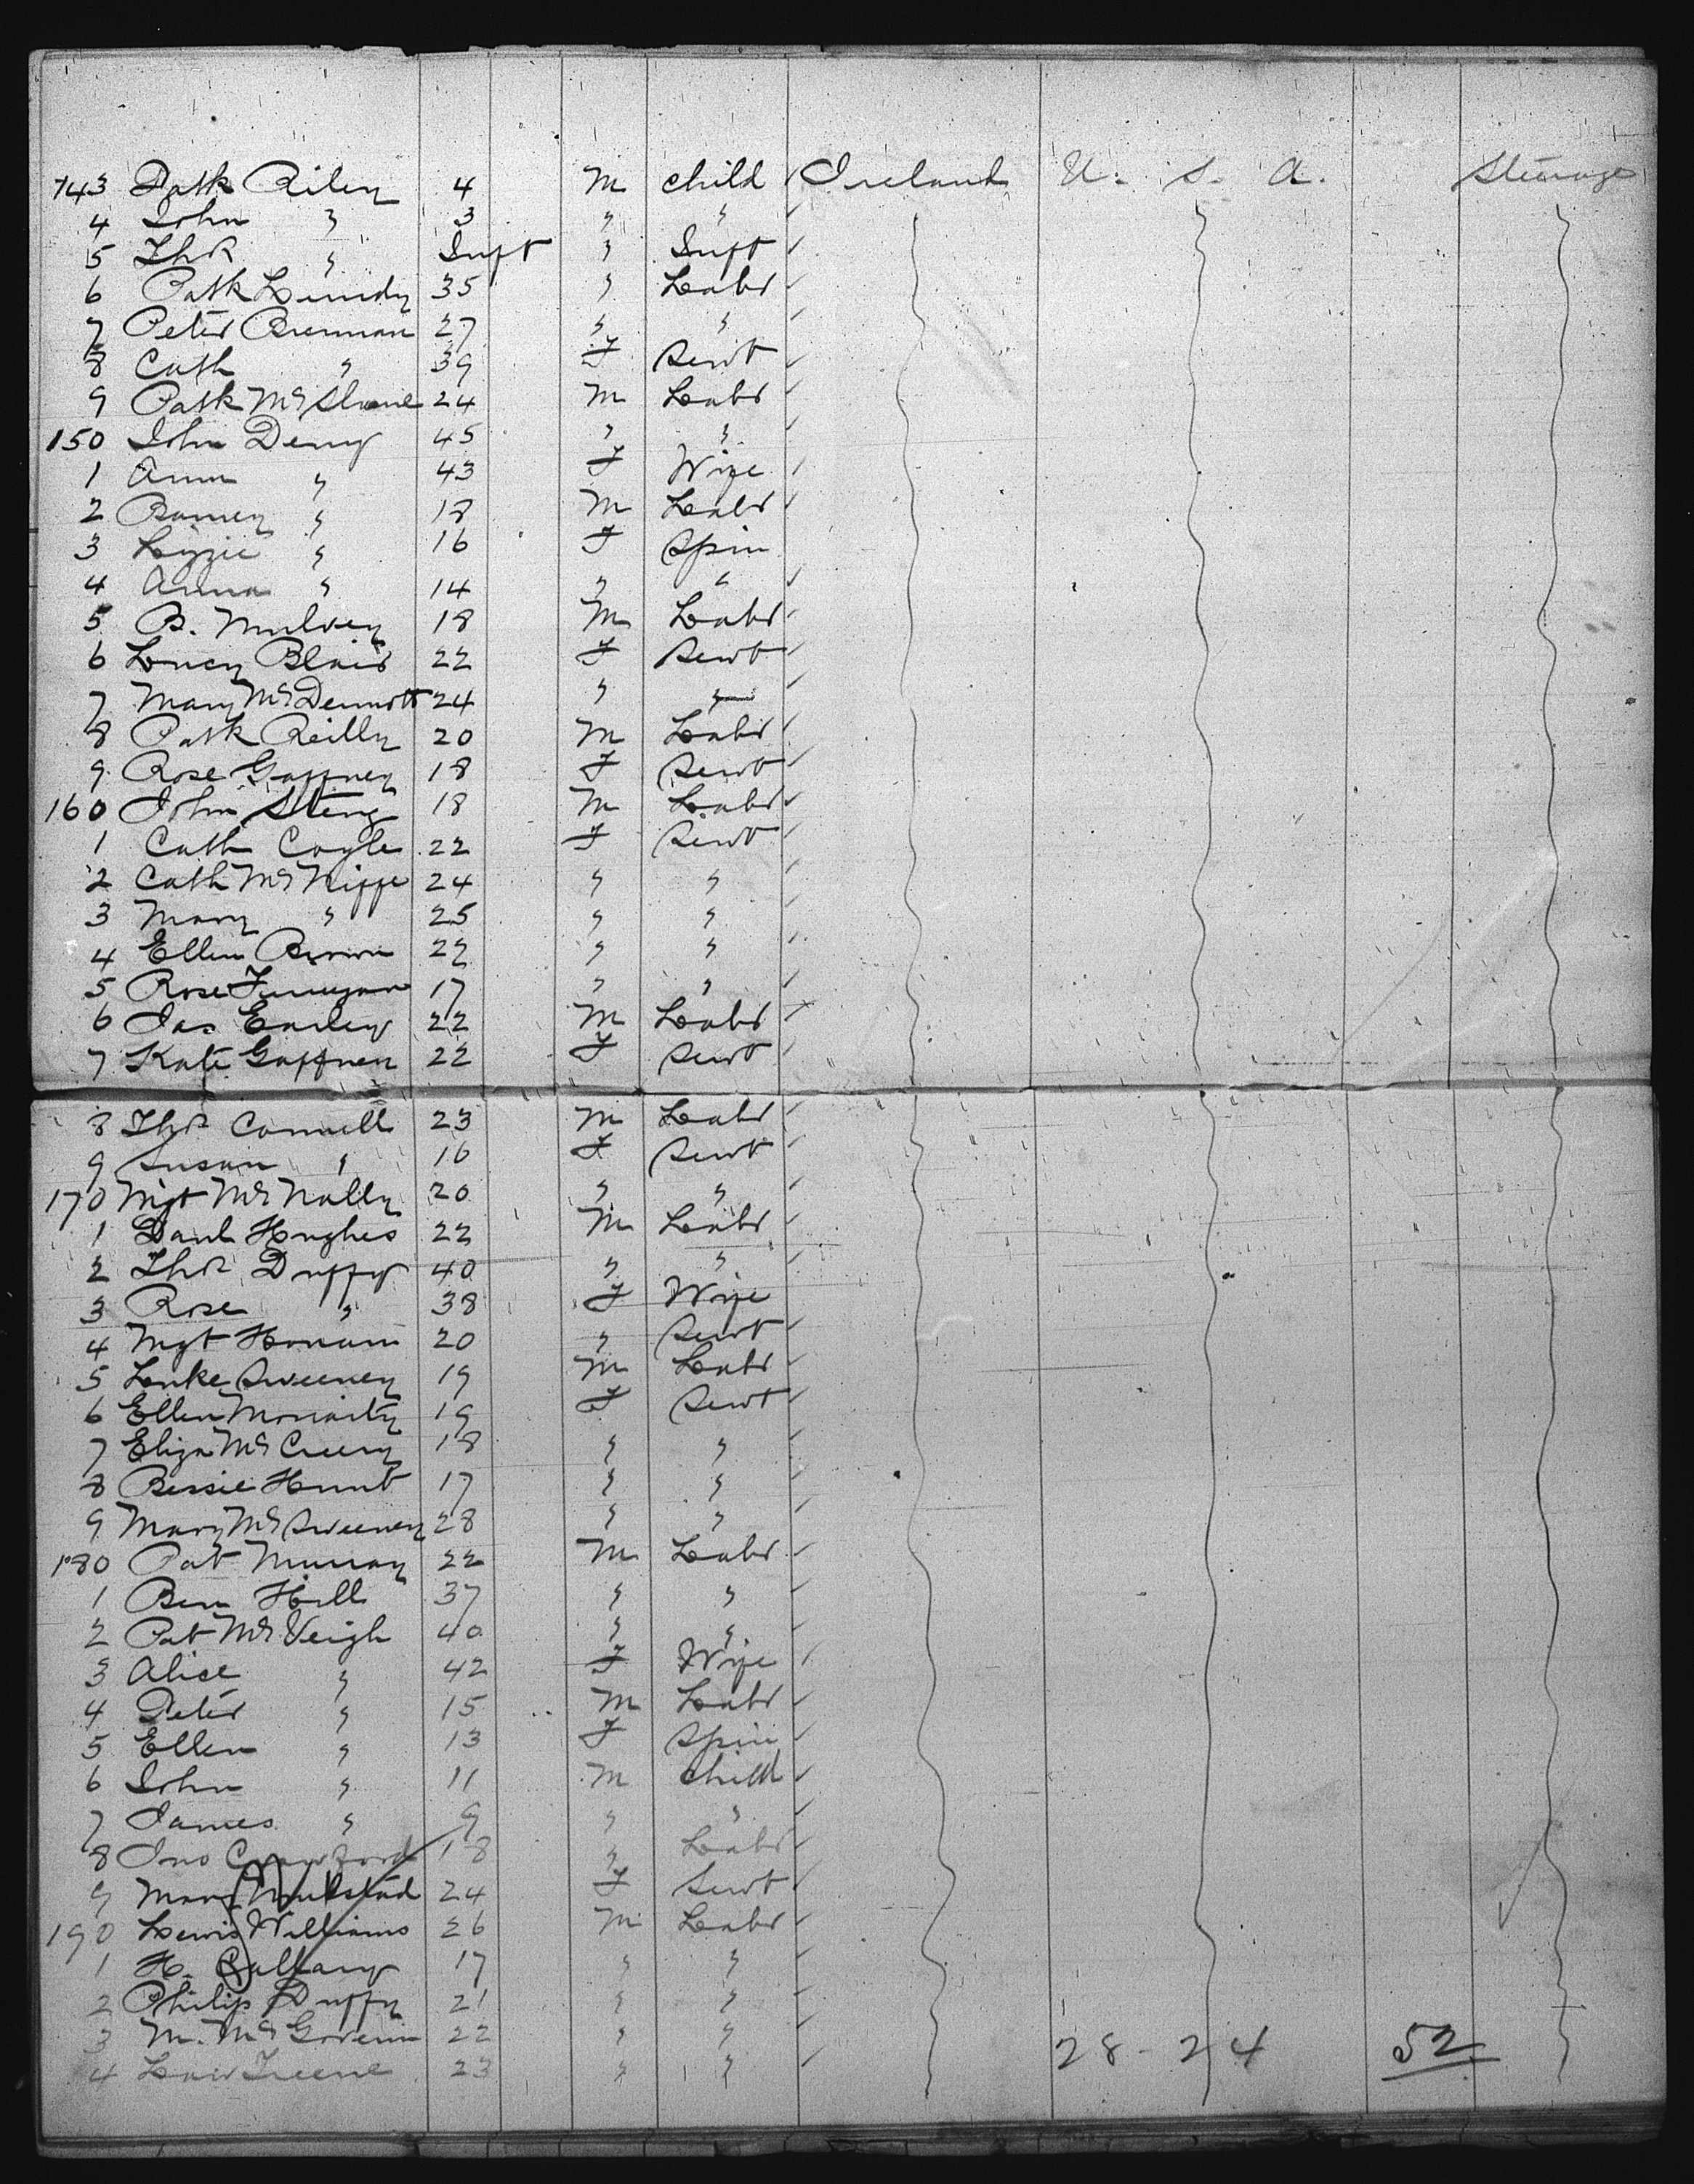 143 Patk Riley 4 M child Ireland U. S. A. Steerage
4 John " 3 " "
5 Thos " Inft " Inft
6 Patk Lundy 35 " Labr
7 Peter Brennan 27 " "
8 Cath " 39 F Servt
9 Patk McShane 24 M Labr
150 John Deny 45 " "
1 Ann " 43 F Wife
2 Barney " 18 M Labr
3 Lizzie " 16 F Spin
4 Anna " 14 " "
5 B. Mulvey 18 M Labr
6 Lucy Blair 22 F Servt
7 Mary McDermott 24 " "
8 Patk Reilly 20 M Labr
9 Rose Gaffney 18 F Servt
160 John 18 M Labr
1 Cath Coyle 22 F Servt
2 Cath McNiffe 24 " "
3 Mary " 25 " "
4 Ellen Brown 22 " "
5 Rose Finnegan 17 " "
6 Jas Earley 22 M Labr
7 Kate Gaffney 22 F Servt
8 Thos Connell 23 M Labr
9 Susan " 16 F Servt
170 Mgt McNally 20 " "
1 Danl Hughes 22 M Labr
2 Thos Duffy 40 " "
3 Rose " 38 F Wife
4 Mgt 20 " Servt
5 Luke Sweeney 19 M Labr
6 Ellen Moriarty 19 F Servt
7 Eliza McCreery 18 " "
8 Bessie Hunt 17 " "
9 Mary McSweeney 28 " "
180 Pat Murray 22 M Labr
1 Ben Hill 37 " "
2 Pat McVeigh 40 " "
3 Alice " 42 F Wife
4 Peter " 15 M Labr
5 Ellen " 13 F Spin
6 John " 11 M Child
7 James " 9 " "
8 Jno Crawford 18 " Labr
9 Mary 24 F Servt
190 Lewis Williams 26 M Labr
1 H. 17 " "
2 Philip Duffy 21 " "
3 M. McGovern 22 " "
4 Greene 23 " "
28 - 24 52